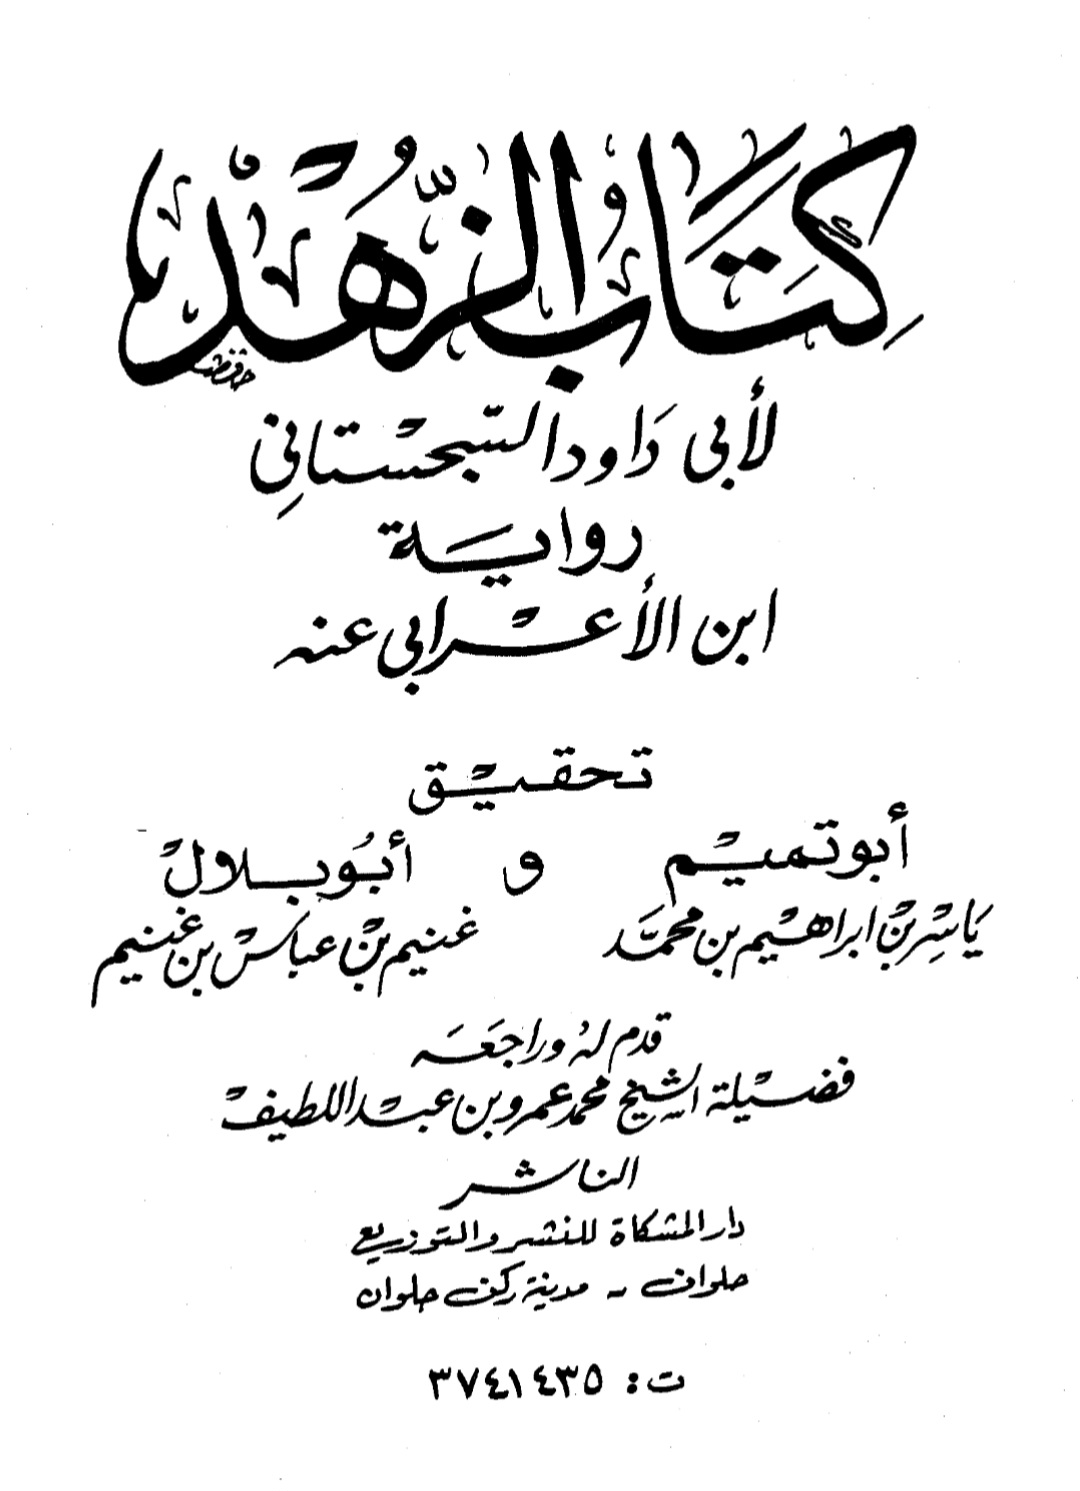 كِتَابُ الزُّهْدْ
لأبي دَاود السّجستاني
رواية
ابن الأعرابي عنه
تحقيق
أبو تميم و أبُو بلال
يَاسِر بن ابراهيم بن محمَّد غنيم بن عباس بن غنيم
قدم لهُ وراجَعَه
فضيلة الشيخ محمد عمرو بن عبد اللطيف
الناشر
دار المشكاة للنشر والتوزيع
حلوان - مدينة ركن حلوان
ت: ٣٧٤١٤٣٥